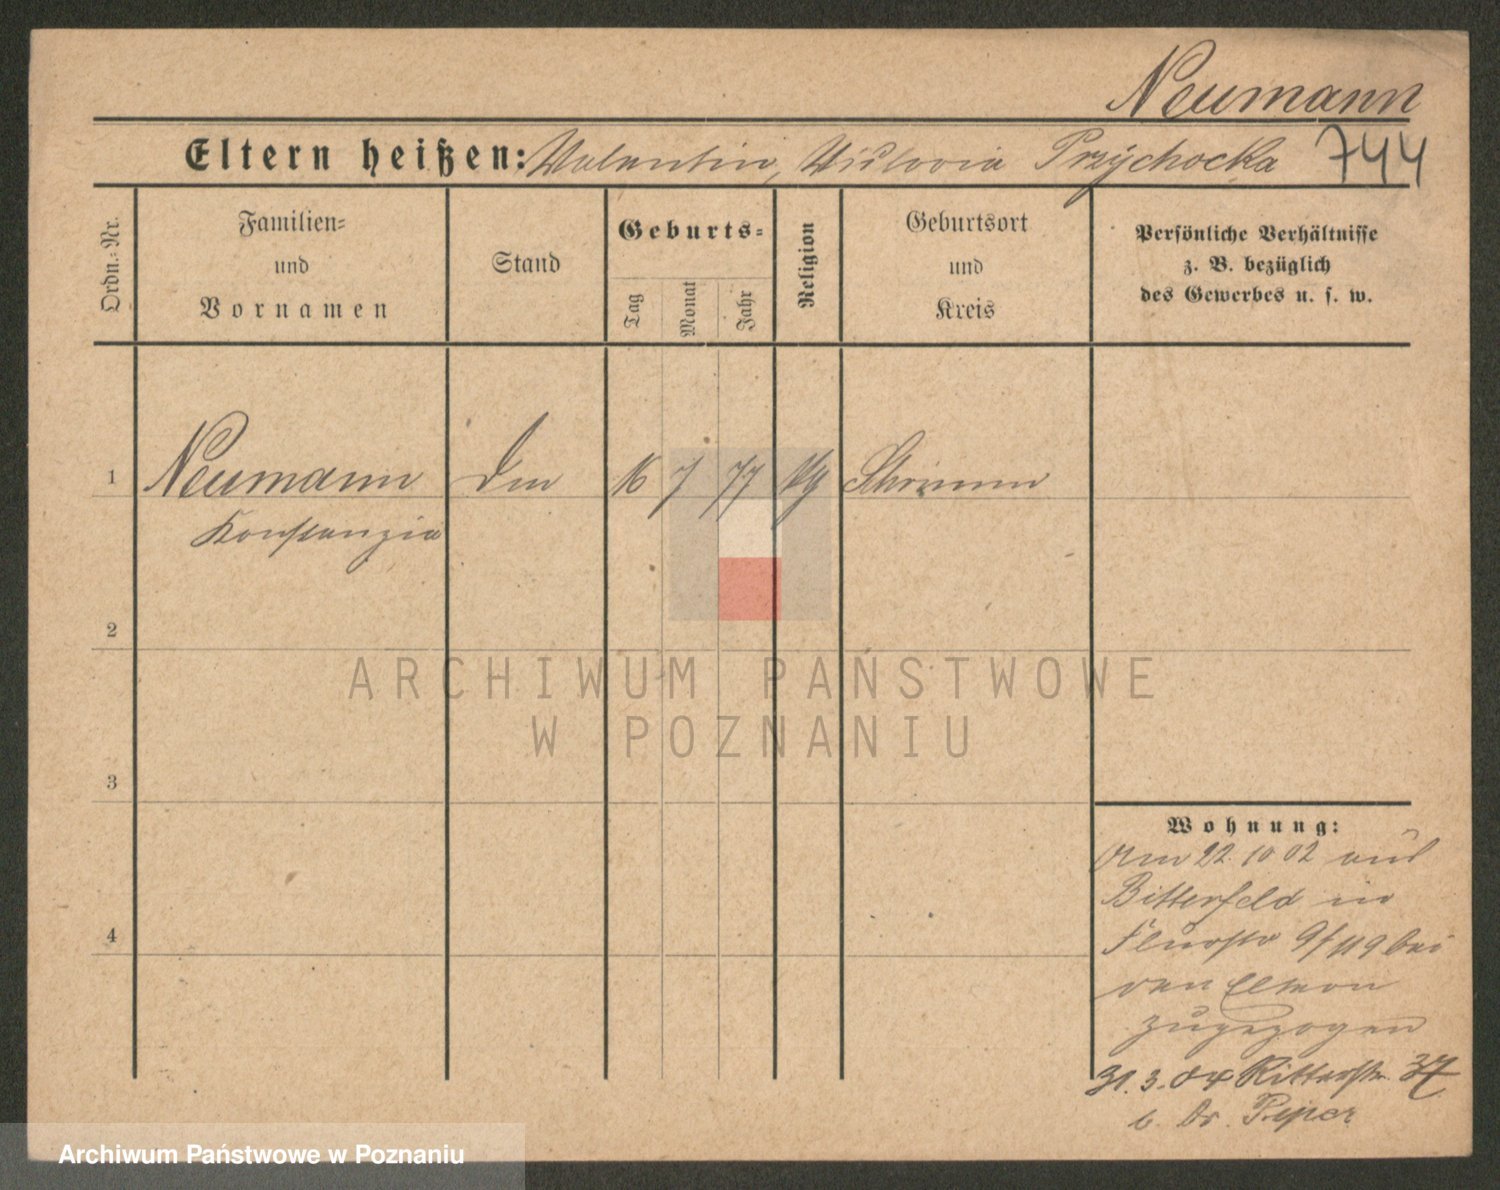 Neumann
Eltern heißen: Valentin, Viktoria Przychocka 744
Ordn.-Nr.
Familien- und Vornamen
Stand
Geburts-
Tag
Monat
Jahr
Religion
Geburtsort und Kreis
Persönliche Verhältnisse
z. B. bezüglich
des Gewerbes u. s. w.
1 Neumann 16 7 77 Schrimm
Konstanzia
2
3
4
Wohnung:
Am 22.10 02 aus
Bitterfeld in
Flurstr 9/119 bei
den Eltern
zugezogen
31.3.04 Ritterstr. 37
b. Dr. Piper
ARCHIWUM PAŃSTWOWE
W POZNANIU
Archiwum Państwowe w Poznaniu